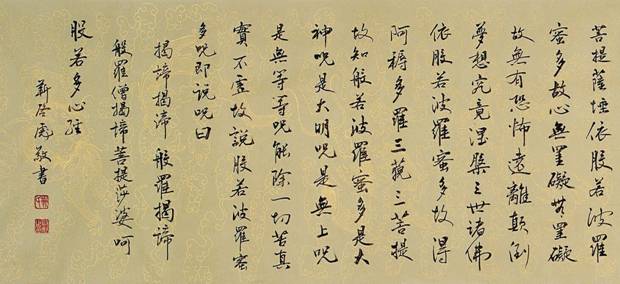 菩提薩埵依般若波羅
蜜多故心無罣礙无罣礙
故無有恐怖遠離顛倒
夢想究竟涅槃三世諸佛
依般若波羅蜜多故得
阿耨多羅三藐三菩提
故知般若波羅蜜多是大
神呪是大明呪是無上呪
是無等等呪能除一切苦真
實不虛故說般若波羅蜜
多呪即說呪曰
揭諦揭諦 般羅揭諦
般羅僧揭諦菩提莎婆呵
般若多心經
敬書